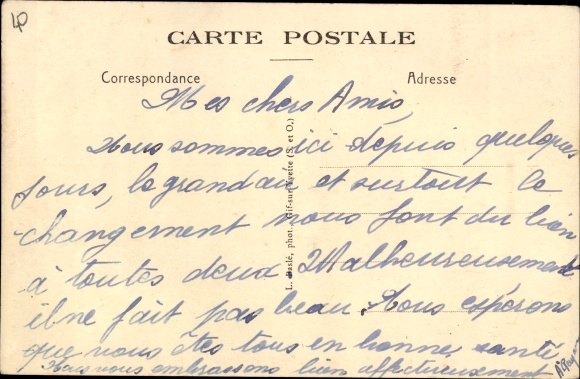 CARTE POSTALE
Correspondance
Adresse
Mes chers Amis,
Nous sommes ici depuis quelques
jours, le grand air et surtout le
changement nous font du bien
à toutes deux. Malheureusement
il ne fait pas beau. Nous espérons
que vous êtes tous en bonne santé
Nous vous embrassons bien affectueusement
L. Baslé, phot. Gif-sur-Yvette (S. et O.)